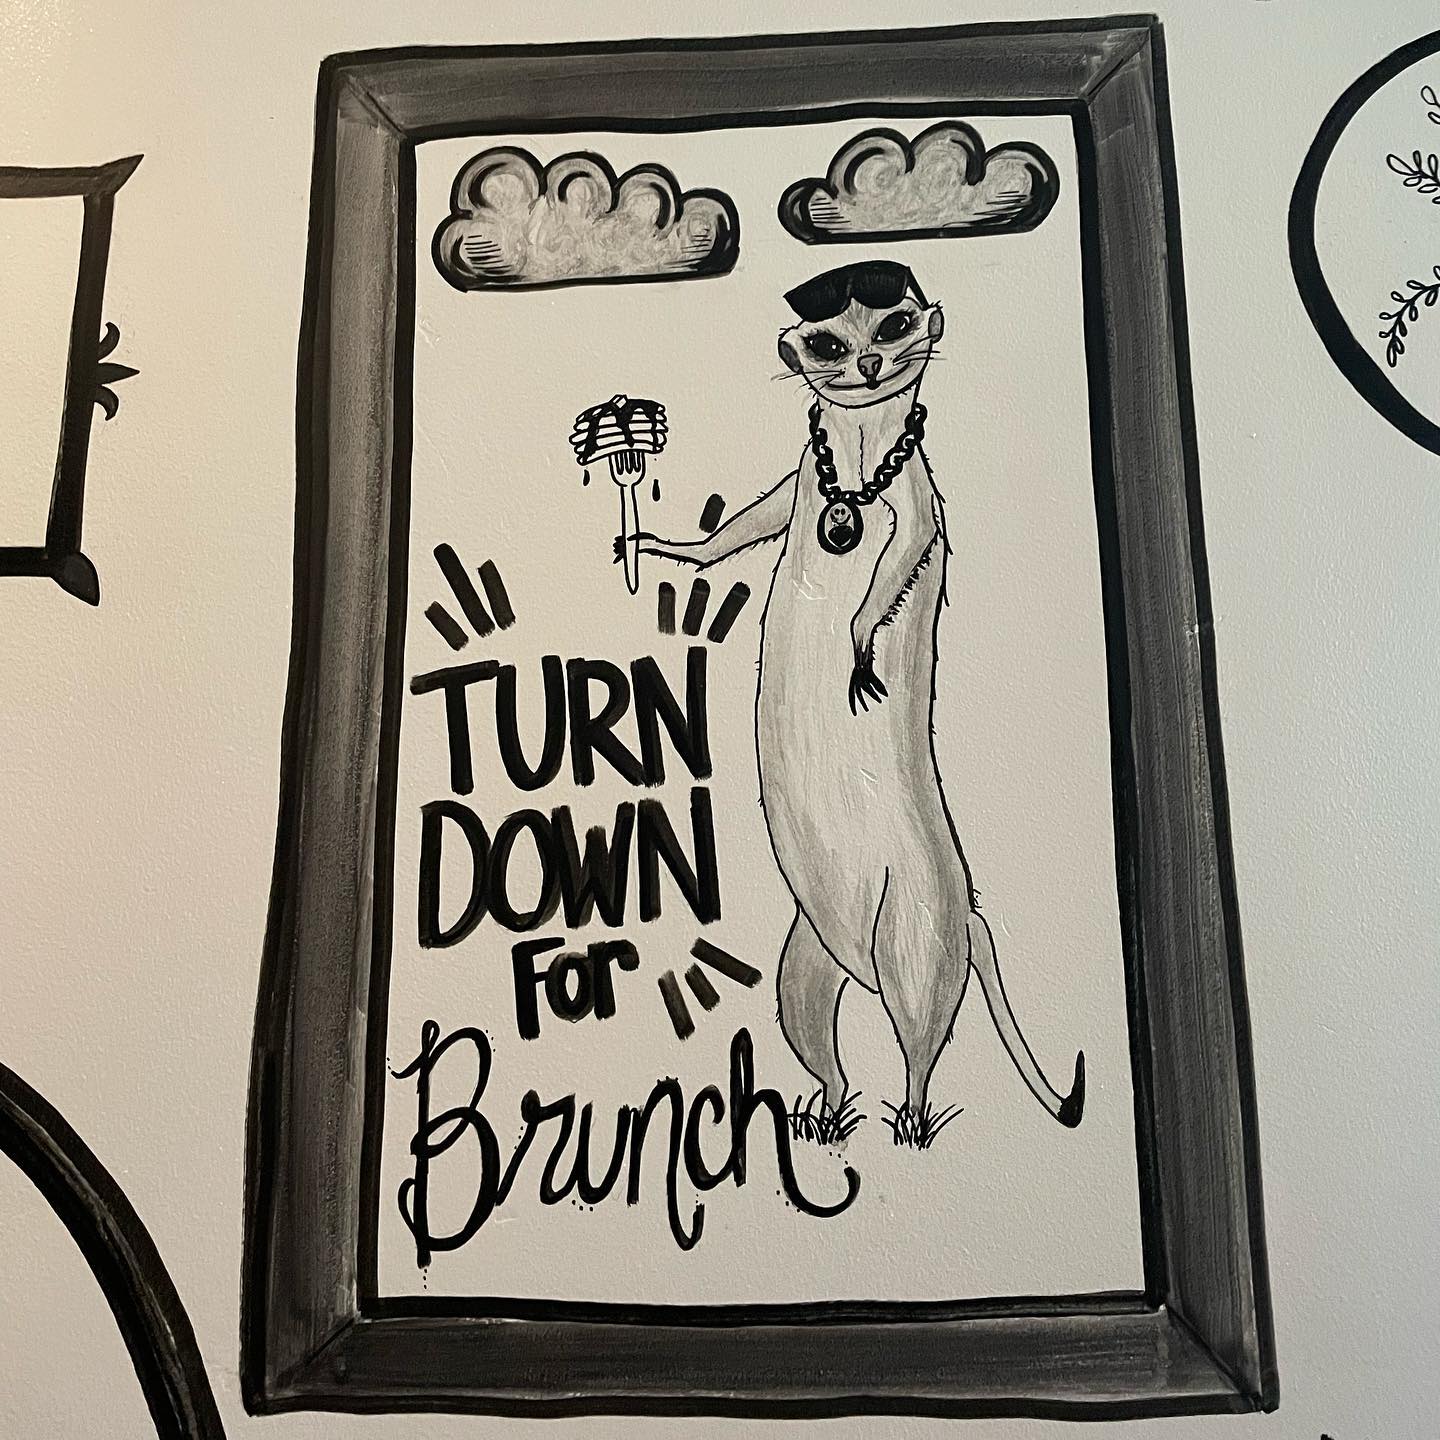 TURN
DOWN
For
Brunch